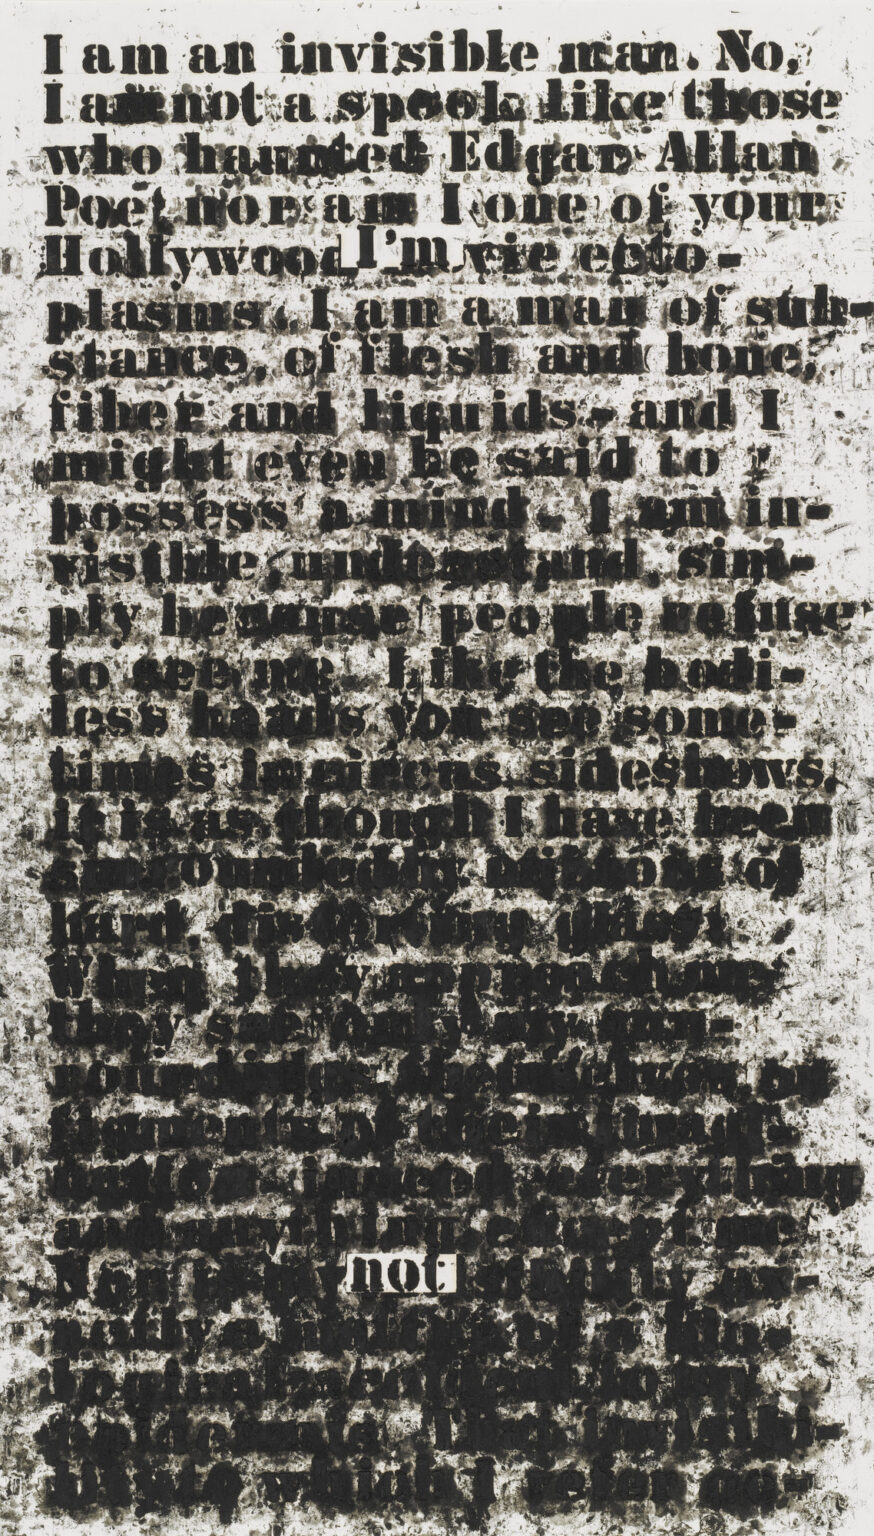 I am an invisible man. No,
I am not a spook like those
who haunted Edgar Allan
Poe; nor am I one of your
Hollywood I'm vie ecto-
plasms. I am a man of sub-
stance, of flesh and bone,
fiber and liquids - and I
might even be said to
possess a mind. I am in-
visible, understand, sim-
ply because people refuse
to see me. Like the bodi-
less heads you see some-
times in circus sideshows,
it is as though I have been
surrounded by mirrors of
hard, distorting glass.
When they approach me
they see only my sur-
roundings, themselves, or
figments of their imagi-
nation indeed, everything
and anything except me.
Nor is my not
a matter of a bio-
to my
epidermis. That invisibi-
lity to which I refer oc-